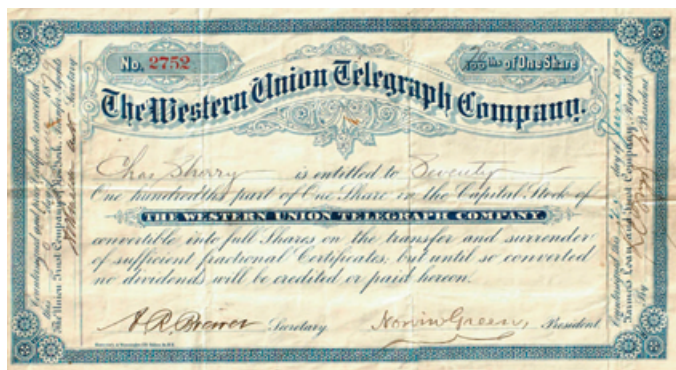 No. 2752
100ths of One Share
The Western Union Telegraph Company.
Chas Sharry is entitled to Seventy
One hundredths part of One Share in the Capital Stock of
THE WESTERN UNION TELEGRAPH COMPANY
convertible into full Shares on the transfer and surrender
of sufficient fractional Certificates, but until so converted
no dividends will be credited or paid hereon.
A.R. Brewer Secretary Norvin Green, President
Countersigned and prior Certificate cancelled
this
The Union Trust Company of New York, Transfer Agents
Secretary
Countersigned this day
Farmers Loan and Trust Company, Registrar
By President